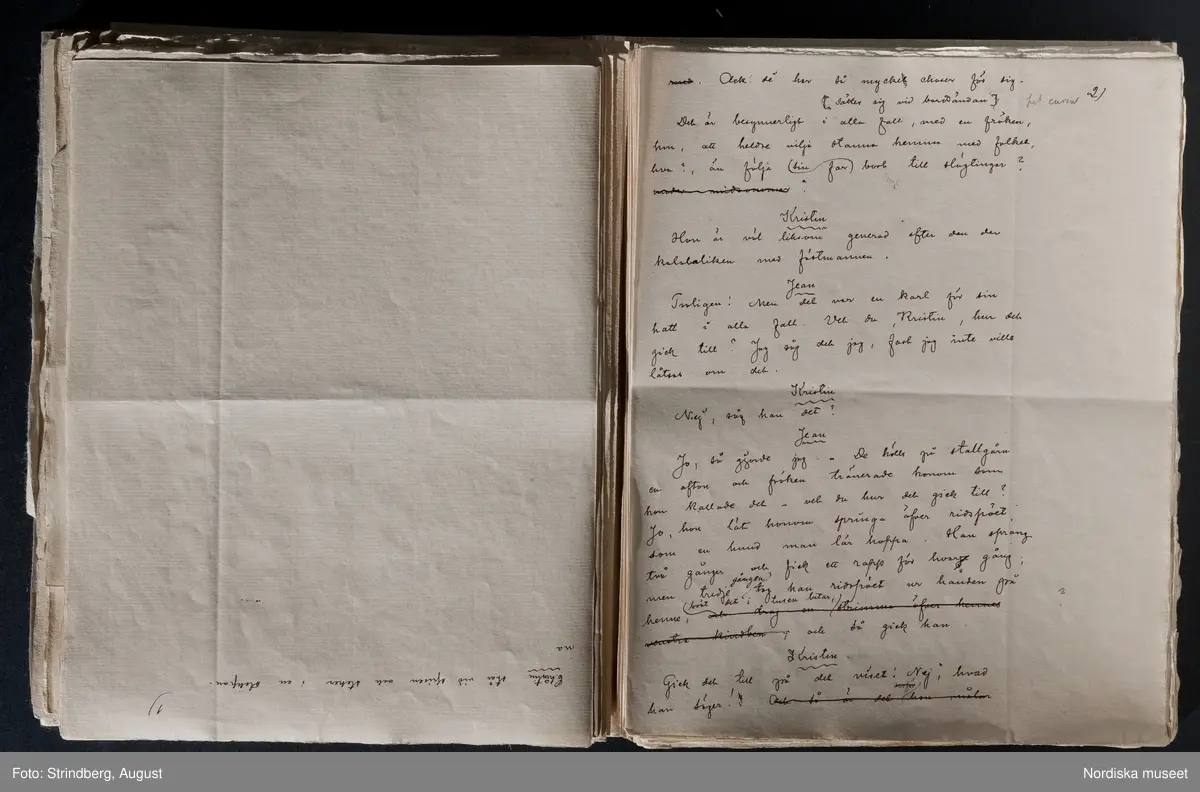 1)
Kristin står vid spisen och steker i en stekpan-
na
2)
Ack! så har så mycket choser för sig.
[Sätter sig vid bordsändan]
Det är besynnerligt i alla fall, med en fröken,
hm, att heldre vilja stanna hemma med folket,
hva?, än följa (sin far) bort till släktingar?
under midsommar ?
Kristin
Hon är väl liksom generad efter den der
kalabaliken med fästmannen.
Jean
Troligen! Men det var en karl för sin
hatt i alla fall. Vet du, Kristin, hur det
gick till? Jag såg det jag, fast jag inte ville
låtsas om det.
Kristin
Nej, såg han det?
Jean
Jo, så gjorde jag. – De hölls på stallgårn
en afton och fröken tränerade honom som
hon kallade det – vet du hur det gick till?
Jo, hon lät honom springa öfver ridspöet,
som en hund man lär hoppa. Han sprang
två gånger och fick ett rapp för hvarje gång;
men tredje gången tog han ridspöet ur handen på
henne, bröt det i tusen bitar, och drog en strimma öfver hennes
venstra kindben; och så gick han.
Kristin
Gick det till på det viset! Nej, hvad
han säger! Och så är det derför hon målar
Foto: Strindberg, August
Nordiska museet